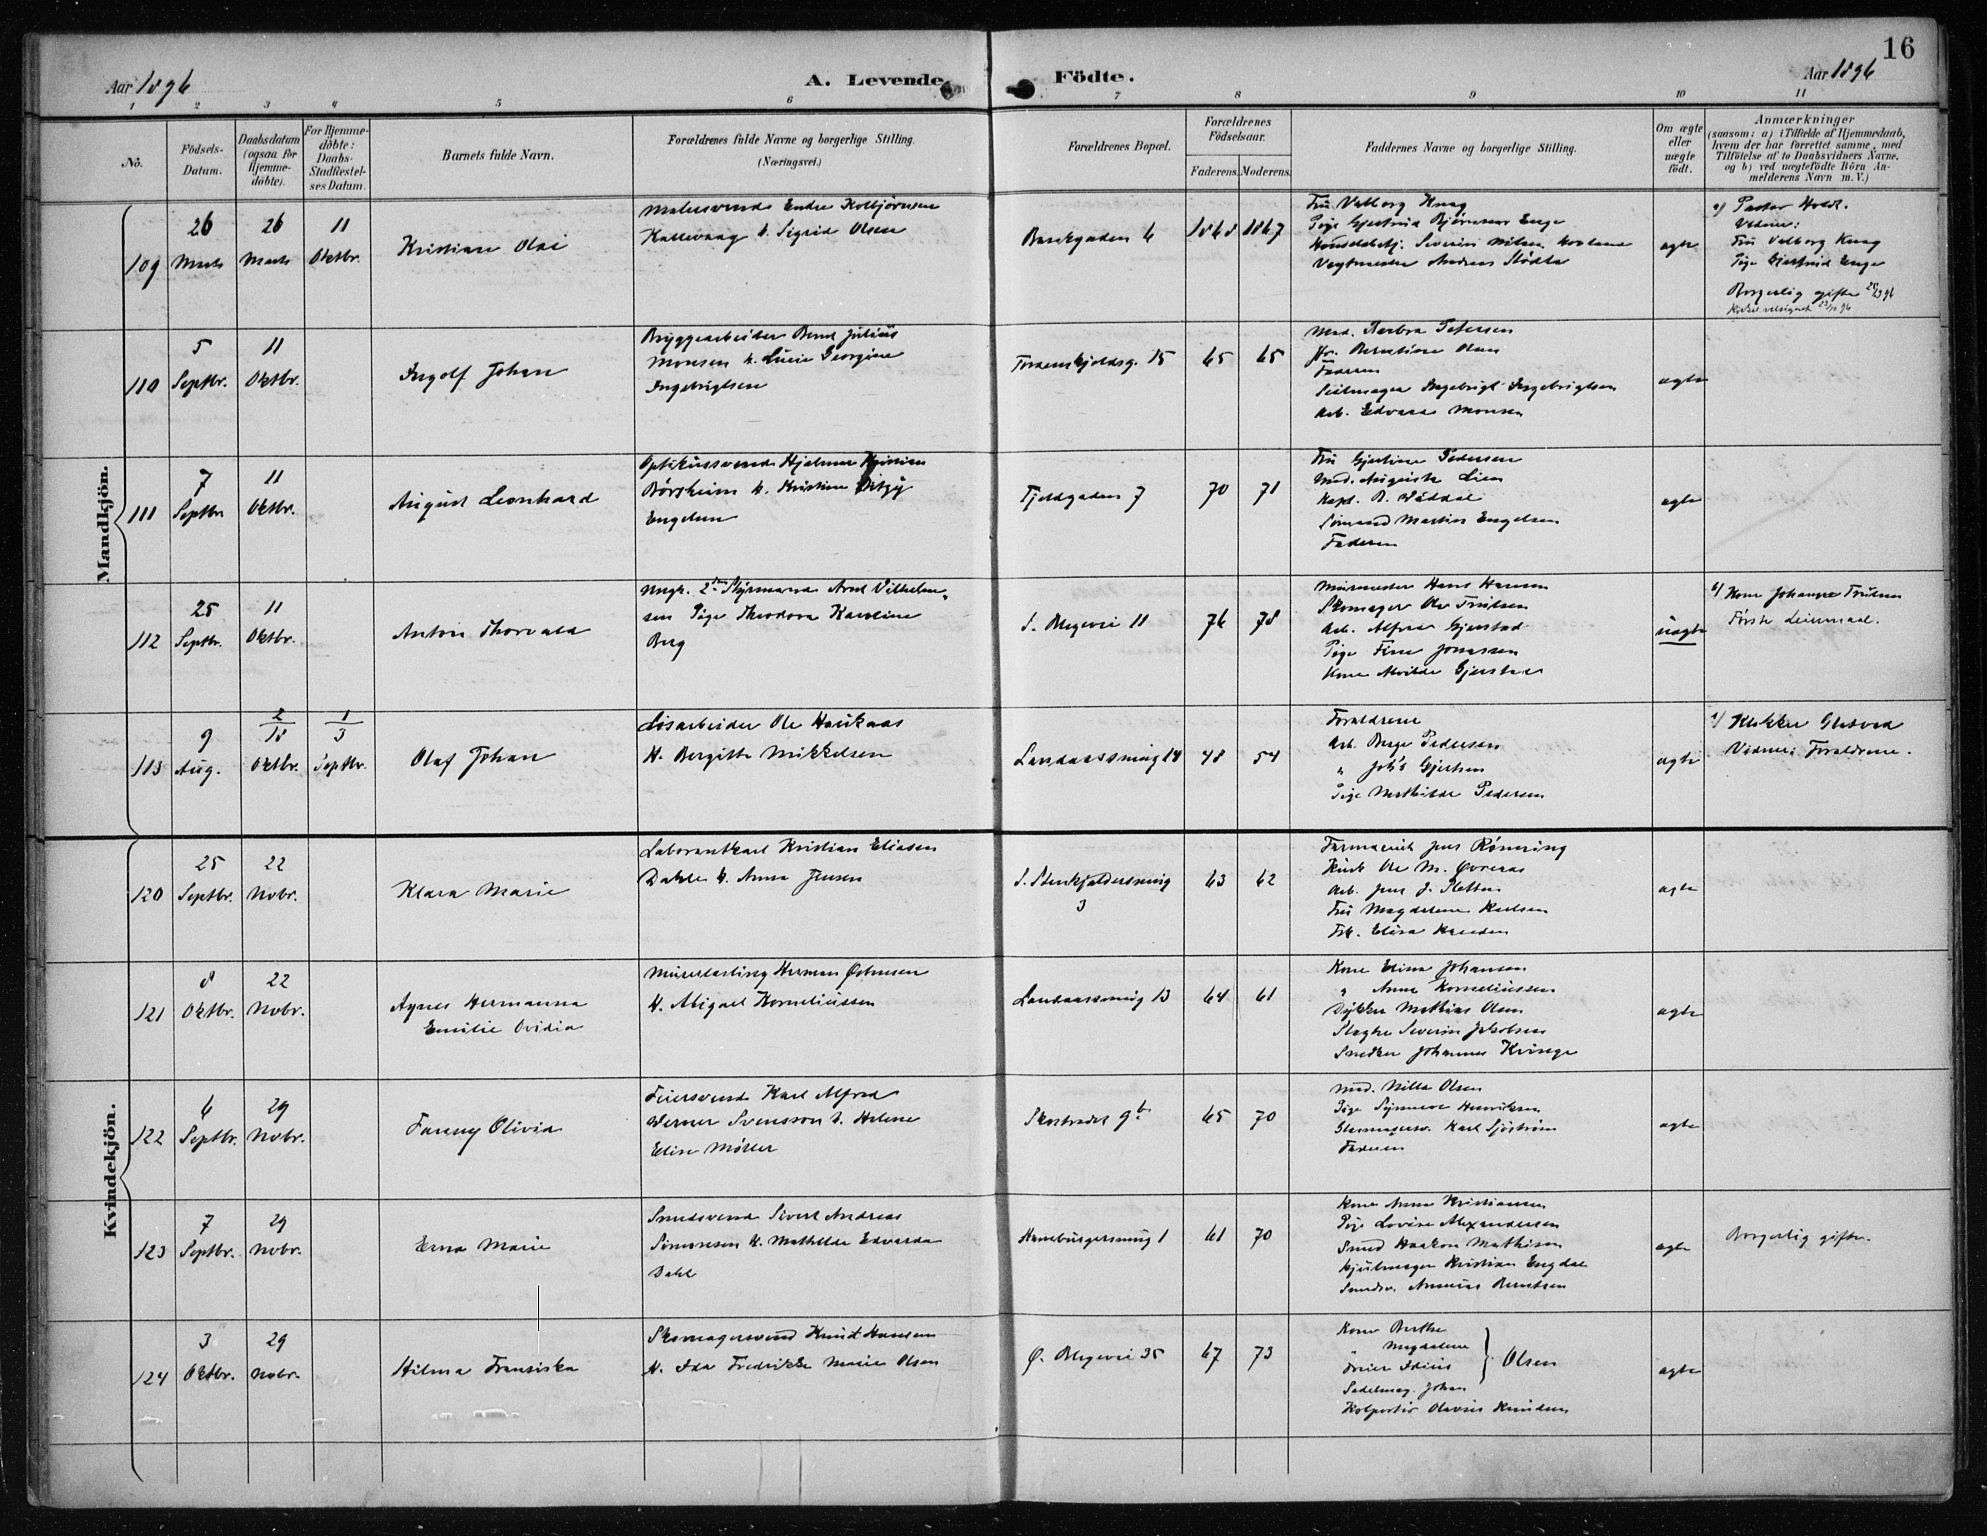 16
Aar 1896
A. Levende Födte.
Aar 1896
1 2 3 4 5 6 7 8 9 10 11
No.
Födsels-Datum.
Daabsdatum (ogsaa for Hjemme-döbte).
For Hjemme-döbte: Daabs-Stadfæstel-ses Datum.
Barnets fulde Navn.
Forældrenes fulde Navne og borgerlige Stilling.
(Næringsvei.)
Forældrenes Bopæl.
Forældrenes Födselsaar.
Faderens. Moderens.
Faddernes Navne og borgerlige Stilling.
Om ægte eller uægte födt.
Anmærkninger
(saasom: a) i Tilfælde af Hjemmedaab, hvem der har forrettet samme, med Tilföielse af to Daabsvidners Navne, og b) ved uægtefödte Börn Anmelderens Navn m. V.)
Mandkjön.
109
26 Marts
26 Marts
11 Oktbr.
Kristian Olai
Malersvend Endre Kolbjørnsen
Kallevaag h. Sigrid Olsen
6
1868 1867
Fru Valborg Knag
Pige Gjertrud Bjørnsen Enge
Vagtmester Andreas
ægte
a) Pastor Hvidt.
Vidner:
Fru Valborg Knag
Pige Gjertrud Enge
Borgerlig gifte
110
5 Septbr.
11 Oktbr.
Ingolf Johan
Bryggearbeider Bernt Julius
Monsen h. Lucie Georgine
Ingebrigtsen
Tordenskjoldsg. 15
65 65
Mad. Barbra Petersen
Faderen
Seilmager Ingebrigt Ingebrigtsen
Arb. Edvard Monsen
ægte
111
7 Septbr.
11 Oktbr.
August Leonhard
Optikussvend Hjalmar Kristian
Børsheim h. Kristine
Engelsen
Fjeldgaden 7
70 71
Fru Gjertine Pedersen
Mad. Auguste Lien
Sømand Martin Engelsen
Faderen
ægte
112
25 Septbr.
11 Oktbr.
Anton Thorvald
Ungk. 2den Styrmand Arnt Vilhelm-
sen Pige Theodora Karoline
Berg
S. Blegevei 11
76 78
Murmester Hans Hansen
Skomager Ole Trulsen
Arb. Alfred Gjerstad
Pige Fine Jonassen
Kone Alvilde Gjerstad
uægte
b) Kone Johanne Trulsen
Første Leiermaal.
113
9 Aug.
2/18 Oktbr.
1/3 Septbr.
Olaf Johan
Løsarbeider Ole Haukaas
h. Bergitte Mikkelsen
Landaassmug 14
48 54
Forældrene
Arb. Berge Pedersen
" Johs Gjertsen
Pige Mathilde Pedersen
ægte
a) Klokker
Vidner: Forældrene.
Kvindekjön.
120
25 Septbr.
22 Novbr.
Klara Marie
Laborantkarl Kristian Eliasen
Dahle h. Anna Jensen
S. Stenkjeldersmug
3
63 62
Farmaceut Jens Rønning
Arb. Jens J. Sletten
Fru Magdalene Karlsen
Frk. Elisa
ægte
121
8 Oktbr.
22 Novbr.
Agnes Hermanna
Emilie Ovidia
Murerlærling Herman
h. Abigael Korneliussen
Landaassmug 13
64 61
Kone Elina Johansen
" Anna Korneliussen
Dykker Mathias Olsen
Slagter Severin Jakobsen
Snedker Johannes
ægte
122
6 Septbr.
29 Novbr.
Fanny Olivia
Feiersvend Karl Alfred
Werner Svensson h. Helene
Elise Møller
Skostrædet 9b
65 70
Mad. Nilla Olsen
Pige Synneve Henriksen
Glasmagersv. Karl Sjöström
Faderen
ægte
123
7 Septbr.
29 Novbr.
Erna Marie
Smedsvend Sivert Andreas
Simonsen h. Mathilde Edvarda
Dahl
Haneburgersmug 1
61 70
Kone Anna Kristiansen
Pige Lovise Alexandersen
Smed Haakon Mathisen
Hjulmager Kristian Engdal
Smedsv. Berntsen
ægte
Borgerlig gifte.
124
3 Oktbr.
29 Novbr.
Hilma Fransiska
Skomagersvend Knut Hansen
h. Ida Fredrikke Marie Olsen
Ø. Blegevei 35
67 73
Kone Berthe
" Magdalene
Sadelmag. Johan
Olsen
Kolportør Olavus Knudsen
ægte